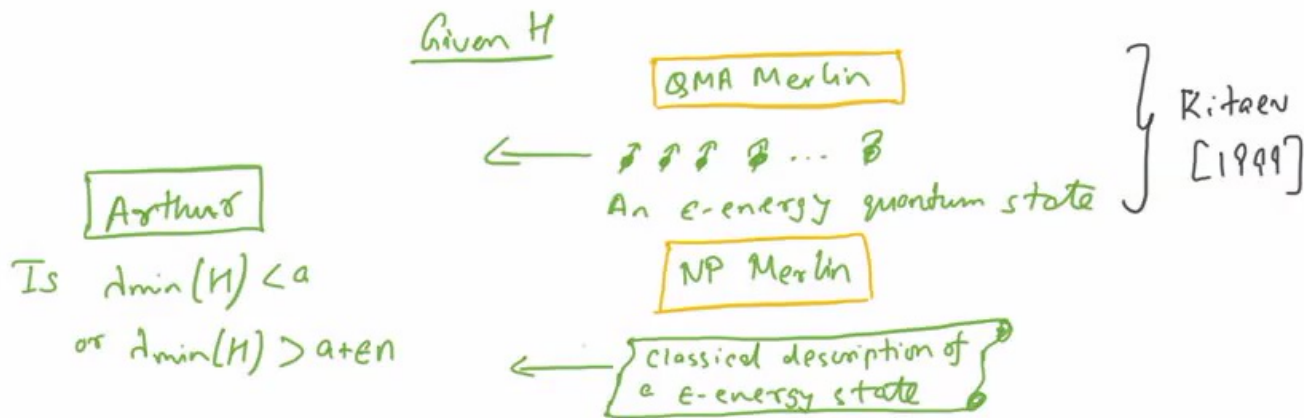 Given H
QMA Merlin
...
An ε-energy quantum state
Kitaev
[1999]
Arthur
Is λmin(H) < a
or λmin(H) > a+εn
NP Merlin
Classical description of
a ε-energy state